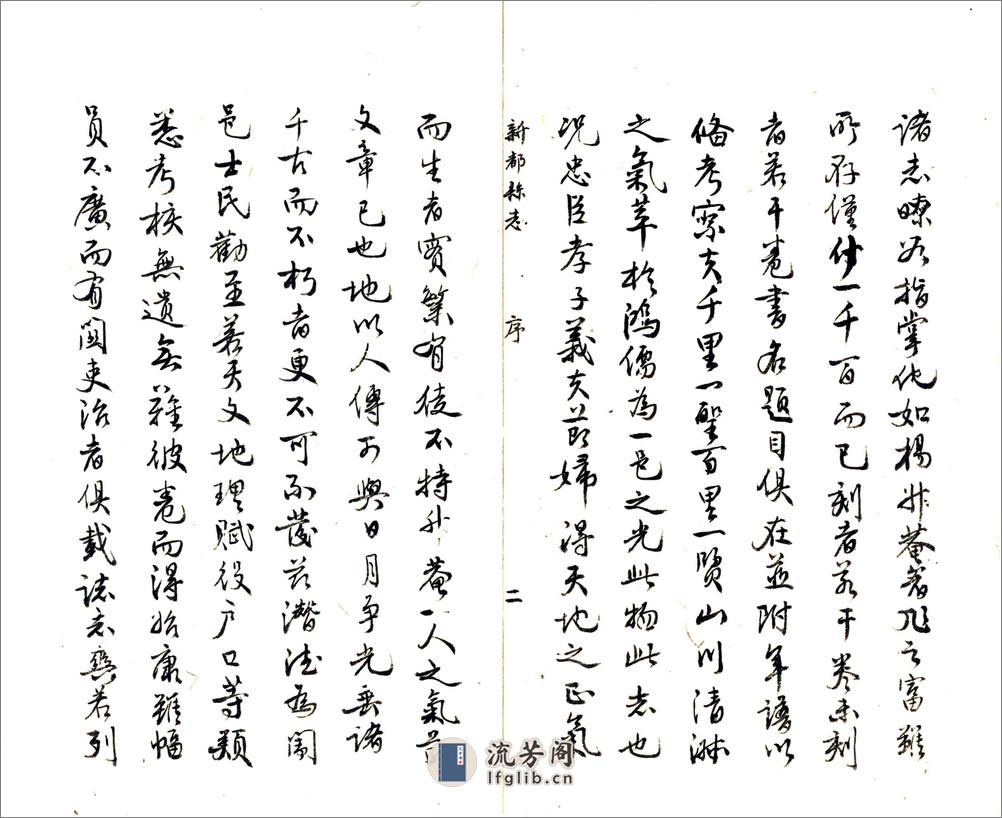 諸志瞭若指掌他如楊升菴著述之富雖
所存僅什一千百而已刻者若干卷未刻
者若干卷書名題目俱在並附年譜以
備考察夫千里一聖百里一賢山川清淑
之氣萃於鴻儒為一邑之光此物此志也
況忠臣孝子義夫節婦得天地之正氣
新都縣志 序 二
而生者實繁有徒不特升菴一人之氣節
文章已也地以人傳可與日月爭光垂諸
千古而不朽者更不可不發茲潛德為闔
邑士民勸至若天文地理賦役戶口等類
悉考核無遺無難披卷而得始康雖幅
員不廣而有關吏治者俱載諸志燦若列
流芳阁
lfglib.cn